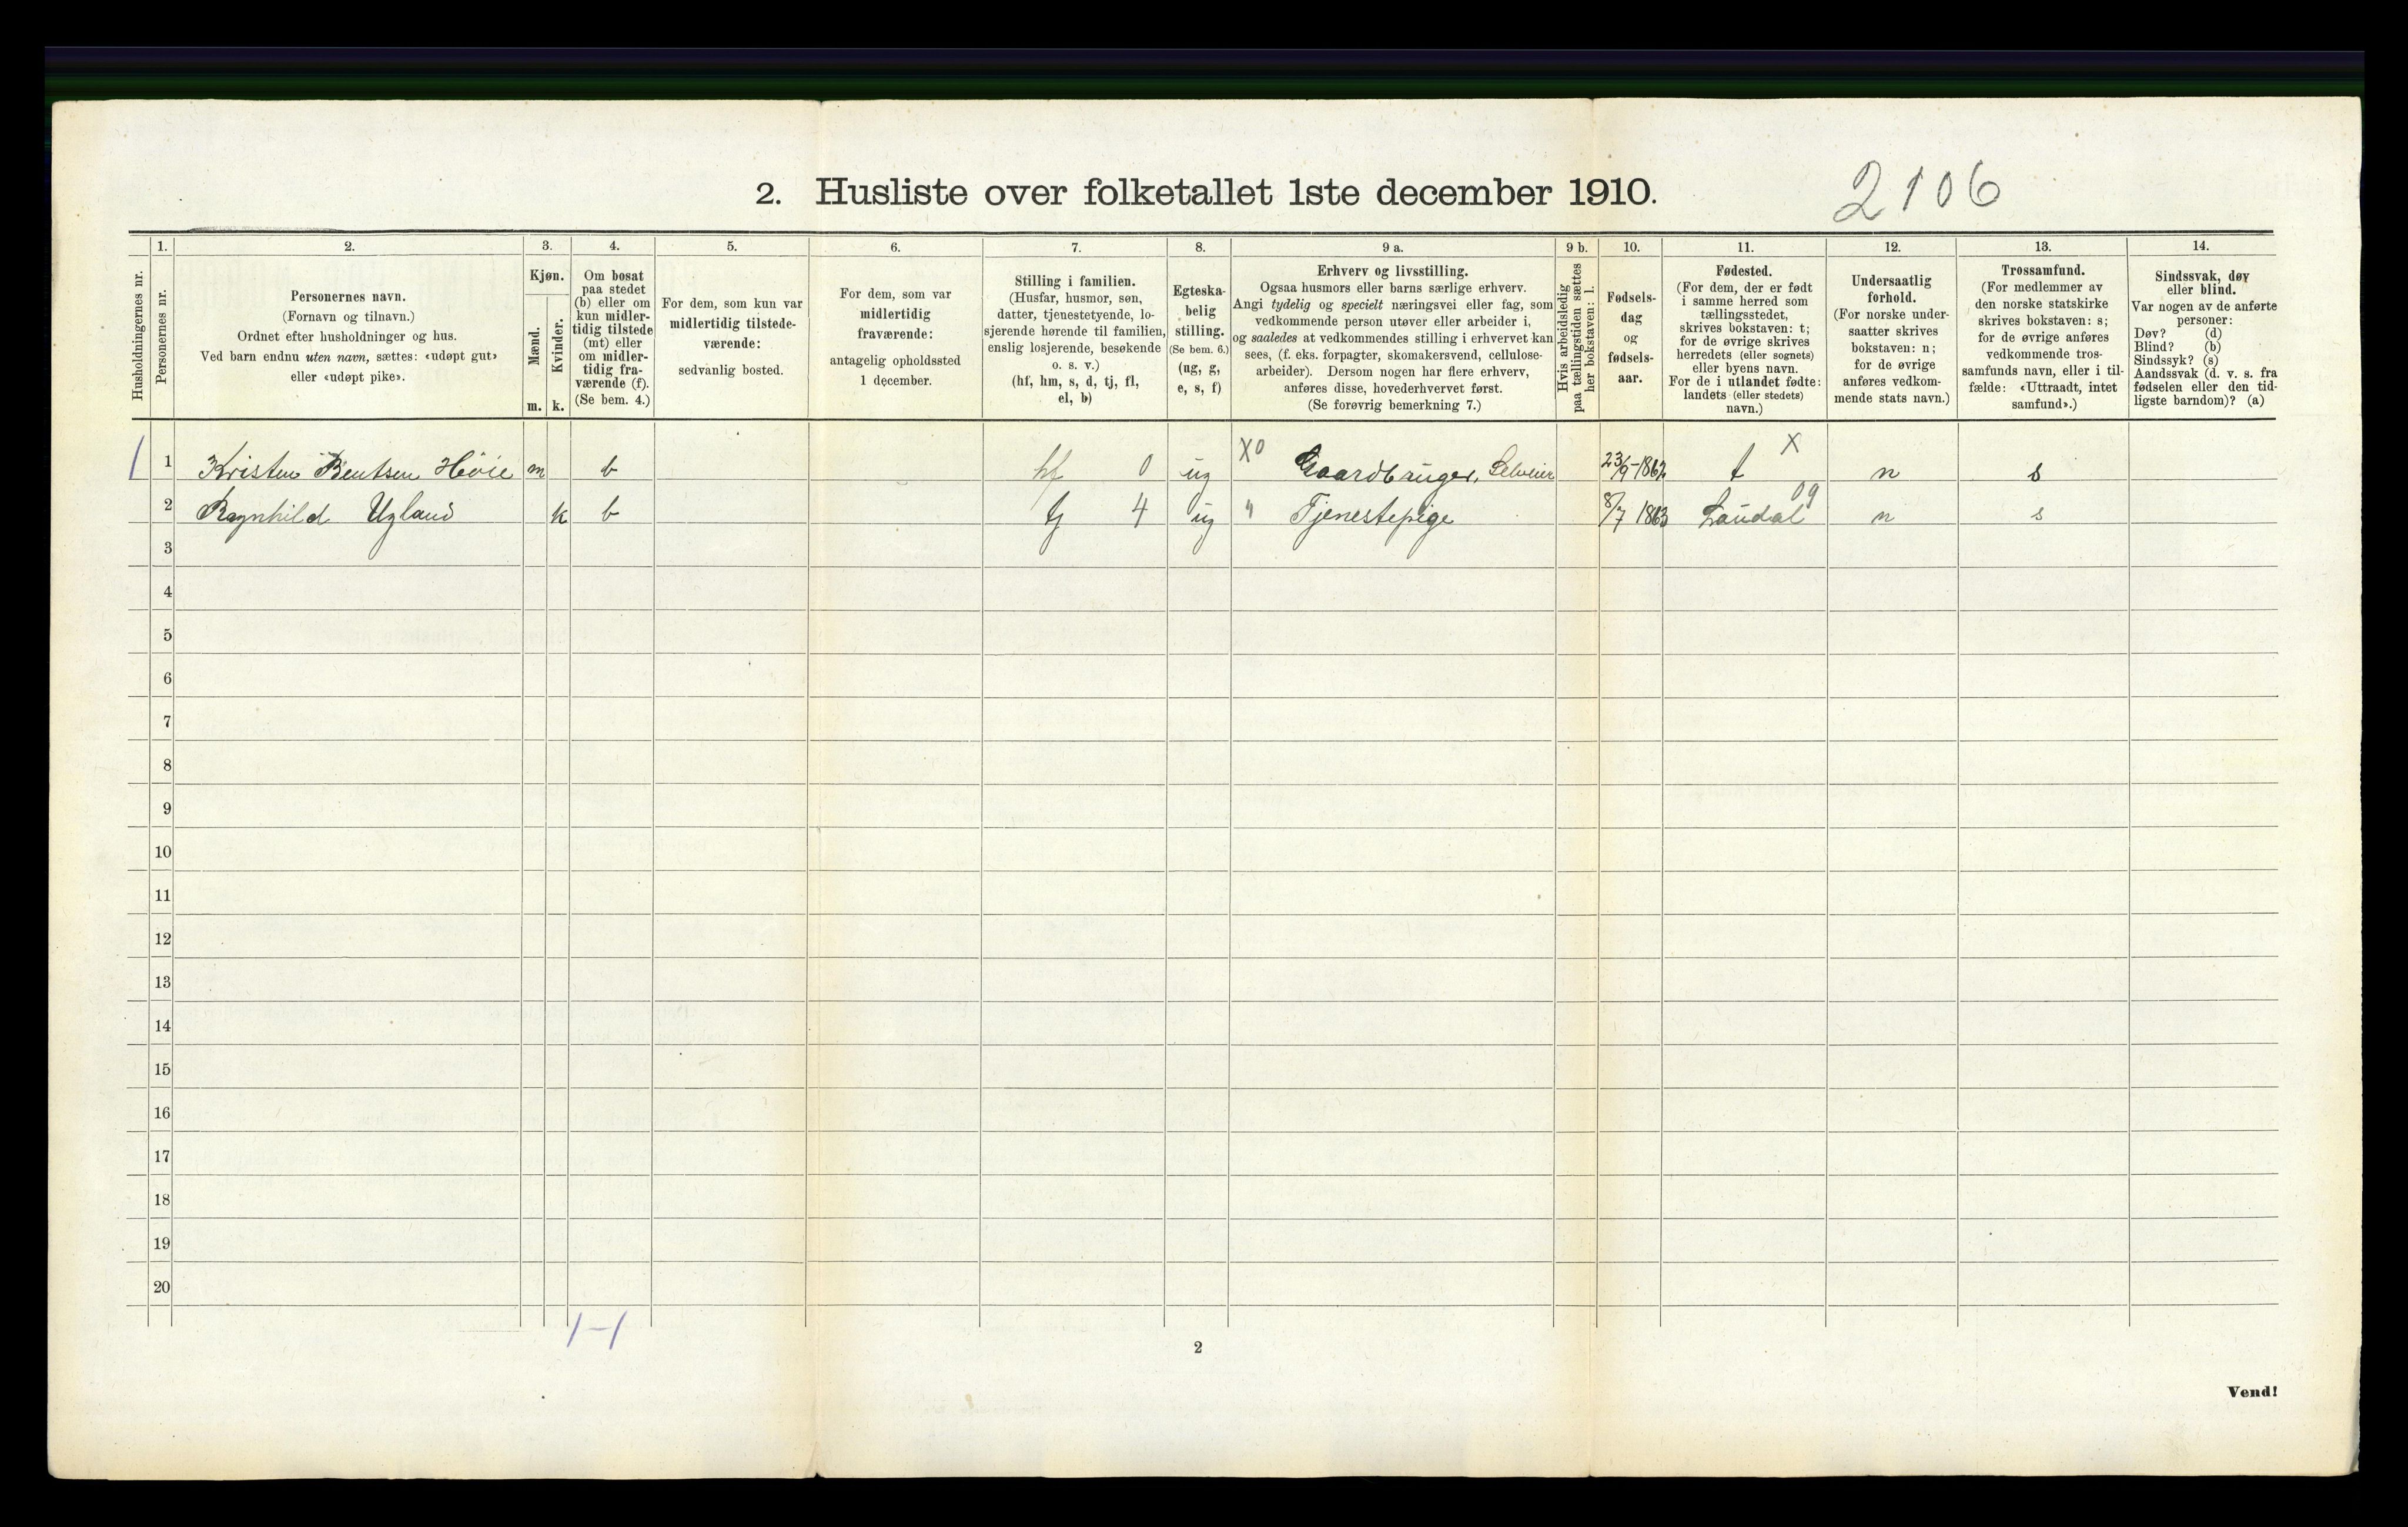 2. Husliste over folketallet 1ste december 1910.
2106
1.
2.
3.
4.
5.
6.
7.
8.
9 a.
9 b.
10.
11.
12.
13.
14.
Husholdningernes nr.
Personernes nr.
Personernes navn.
(Fornavn og tilnavn.)
Ordnet efter husholdninger og hus.
Ved barn endnu uten navn, sættes: «udøpt gut»
eller «udøpt pike».
Kjøn.
Mænd.
Kvinder.
m.
k.
Om bosat
paa stedet
(b) eller om
kun midler-
tidig tilstede
(mt) eller
om midler-
tidig fra-
værende (f).
(Se bem. 4.)
For dem, som kun var
midlertidig tilstede-
værende:
sedvanlig bosted.
For dem, som var
midlertidig
fraværende:
antagelig opholdssted
1 december.
Stilling i familien.
(Husfar, husmor, søn,
datter, tjenestetyende, lo-
sjerende hørende til familien,
enslig losjerende, besøkende
o. s. v.)
(hf, hm, s, d, tj, fl,
el, b)
Egteska-
belig
stilling.
(Se bem. 6.)
(ug, g,
e, s, f)
Erhverv og livsstilling.
Ogsaa husmors eller barns særlige erhverv.
Angi tydelig og specielt næringsvei eller fag, som
vedkommende person utøver eller arbeider i,
og saaledes at vedkommendes stilling i erhvervet kan
sees, (f. eks. forpagter, skomakersvend, cellulose-
arbeider). Dersom nogen har flere erhverv,
anføres disse, hovederhvervet først.
(Se forøvrig bemerkning 7.)
Hvis arbeidsledig
paa tællingstiden sættes
her bokstaven: l.
Fødsels-
dag
og
fødsels-
aar.
Fødested.
(For dem, der er født
i samme herred som
tællingsstedet,
skrives bokstaven: t;
for de øvrige skrives
herredets (eller sognets)
eller byens navn.
For de i utlandet fødte:
landets (eller stedets)
navn.)
Undersaatlig
forhold.
(For norske under-
saatter skrives
bokstaven: n;
for de øvrige
anføres vedkom-
mende stats navn.)
Trossamfund.
(For medlemmer av
den norske statskirke
skrives bokstaven: s;
for de øvrige anføres
vedkommende tros-
samfunds navn, eller i til-
fælde: «Uttraadt, intet
samfund».)
Sindssvak, døv
eller blind.
Var nogen av de anførte
personer:
Døv? (d)
Blind? (b)
Sindssyk? (s)
Aandssvak (d. v. s. fra
fødselen eller den tid-
ligste barndom)? (a)
1 1 Kristen Bentsen Høie m b hf 0 ug X0 Gaardbruger, Selveier 23/9-1862 t X n s
2 Ragnhild Ugland k b tj 4 ug " Tjenestepige 8/7 1863 Laudal 09 n s
3
4
5
6
7
8
9
10
11
12
13
14
15
16
17
18
19
20
1-1
2
Vend!